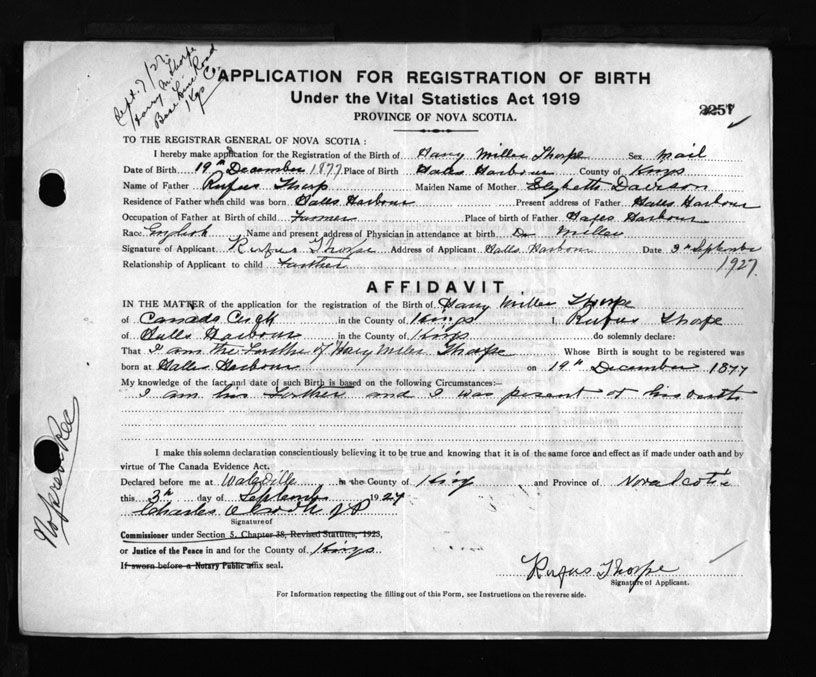 Sept. 9/27.
Harry M. Thorpe
Base Line Road
Kgs Co.
APPLICATION FOR REGISTRATION OF BIRTH
Under the Vital Statistics Act 1919
2257
PROVINCE OF NOVA SCOTIA.
TO THE REGISTRAR GENERAL OF NOVA SCOTIA :
I hereby make application for the Registration of the Birth of Harry Miller Thorpe Sex Mail
Date of Birth 19th December 1877 Place of Birth Halls Harbour County of Kings
Name of Father Rufus Thorp Maiden Name of Mother Davison
Residence of Father when child was born Halls Harbour Present address of Father Halls Harbour
Occupation of Father at Birth of child Farmer Place of birth of Father Halls Harbour
Race English Name and present address of Physician in attendance at birth Dr Miller
Signature of Applicant Rufus Thorpe Address of Applicant Halls Harbour Date 3rd September
Relationship of Applicant to child Farther 1927.
AFFIDAVIT
IN THE MATTER of the application for the registration of the Birth of Harry Miller Thorpe
of Canada in the County of Kings I, Rufus Thorpe
of Halls Harbour in the County of Kings do solemnly declare:
That I am the Farther of Harry Miller Thorpe Whose Birth is sought to be registered was
born at Halls Harbour on 19th December 1877
My knowledge of the fact and date of such Birth is based on the following Circumstances:—
I am his Farther and I was present at his birth
I make this solemn declaration conscientiously believing it to be true and knowing that it is of the same force and effect as if made under oath and by
virtue of The Canada Evidence Act.
Declared before me at in the County of King and Province of Nova Scotia
this 3rd day of September 1927
Charles J P
Signature of
Commissioner under Section 5, Chapter 38, Revised Statutes, 1923,
or Justice of the Peace in and for the County of Kings
If sworn before a Notary Public affix seal.
Rufus Thorpe
Signature of Applicant.
For Information respecting the filling out of this Form, see Instructions on the reverse side.
No prev Rec